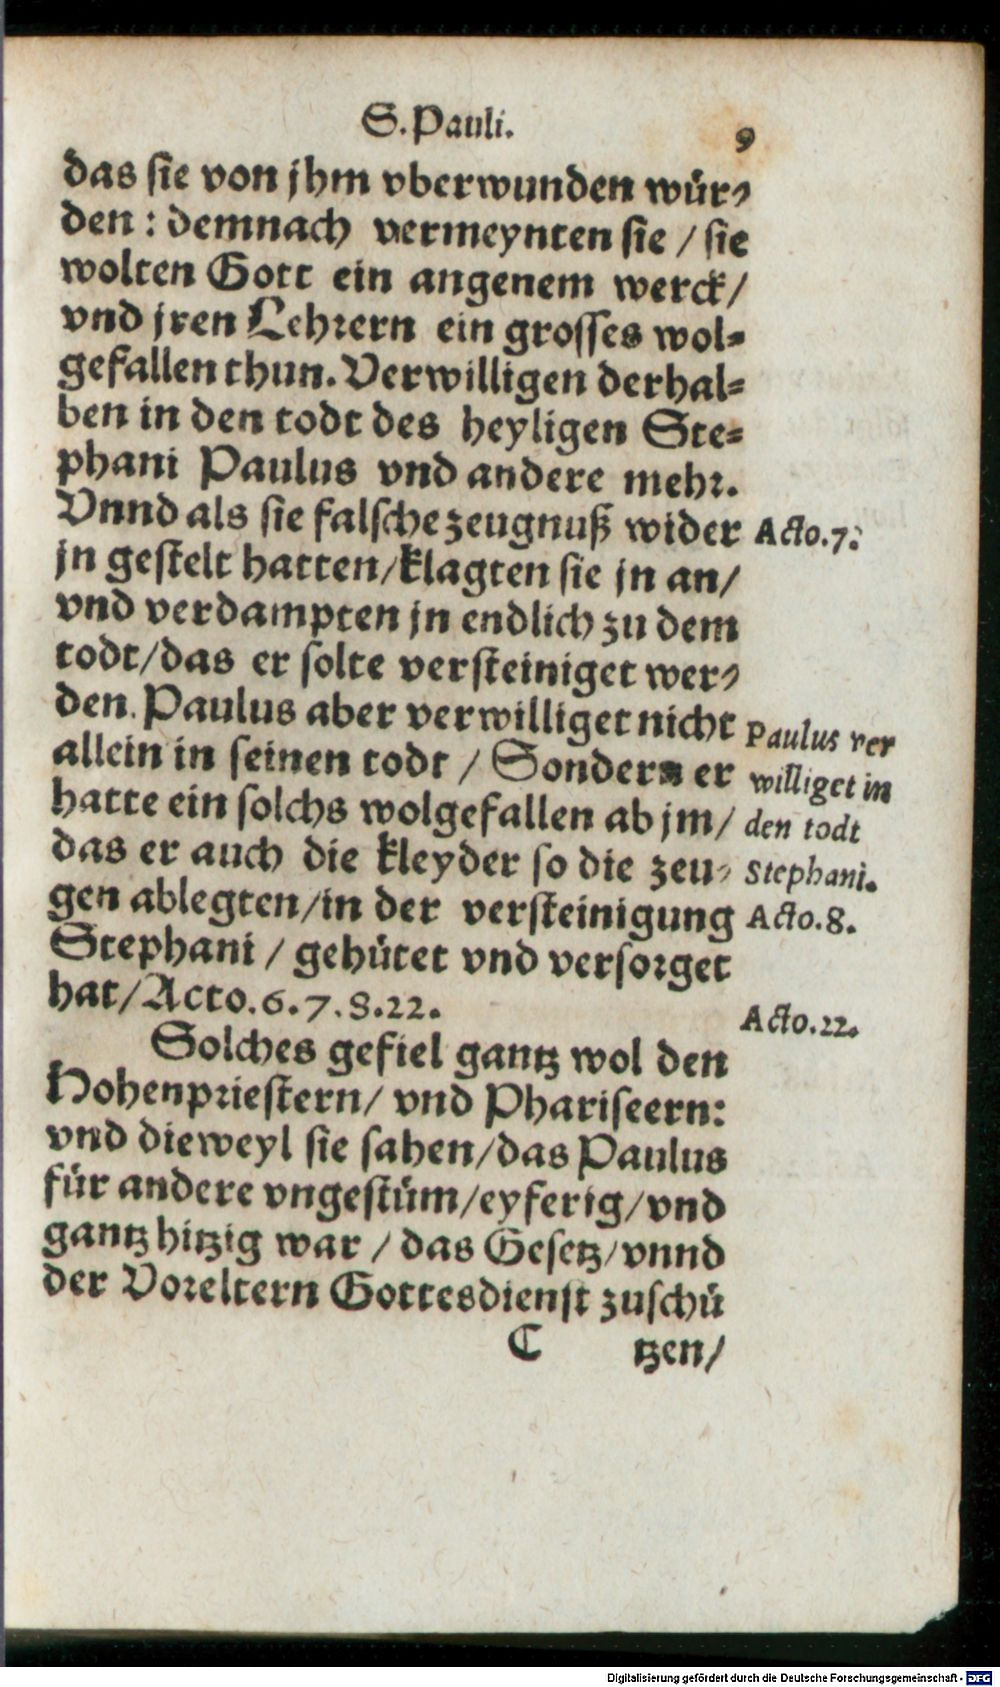 S. Pauli. 9
das sie von jhm vberwunden wür⸗
den : demnach vermeynten sie / sie
wolten Gott ein angenem werck /
vnd jren Lehrern ein grosses wol⸗
gefallen thun. Verwilligen derhal⸗
ben in den todt des heyligen Ste⸗
phani Paulus vnd andere mehr.
Vnnd als sie falsche zeugnuß wider
Acto. 7.
jn gestelt hatten / klagten sie jn an /
vnd verdampten jn endlich zu dem
todt / das er solte versteiniget wer⸗
den. Paulus aber verwilliget nicht
Paulus ver
allein in seinen todt / Sondern er
williget in
hatte ein solchs wolgefallen ab jm /
den todt
das er auch die kleyder so die zeu⸗
Stephani.
gen ablegten / in der versteinigung
Acto. 8.
Stephani / gehütet vnd versorget
hat / Acto. 6. 7. 8. 22.
Acto. 22.
Solches gefiel gantz wol den
Hohenpriestern / vnd Phariseern:
vnd dieweyl sie sahen / das Paulus
für andere vngestüm / eyferig / vnd
gantz hitzig war / das Gesetz / vnnd
der Voreltern Gottesdienst zuschü
C tzen /
Digitalisierung gefördert durch die Deutsche Forschungsgemeinschaft - DFG